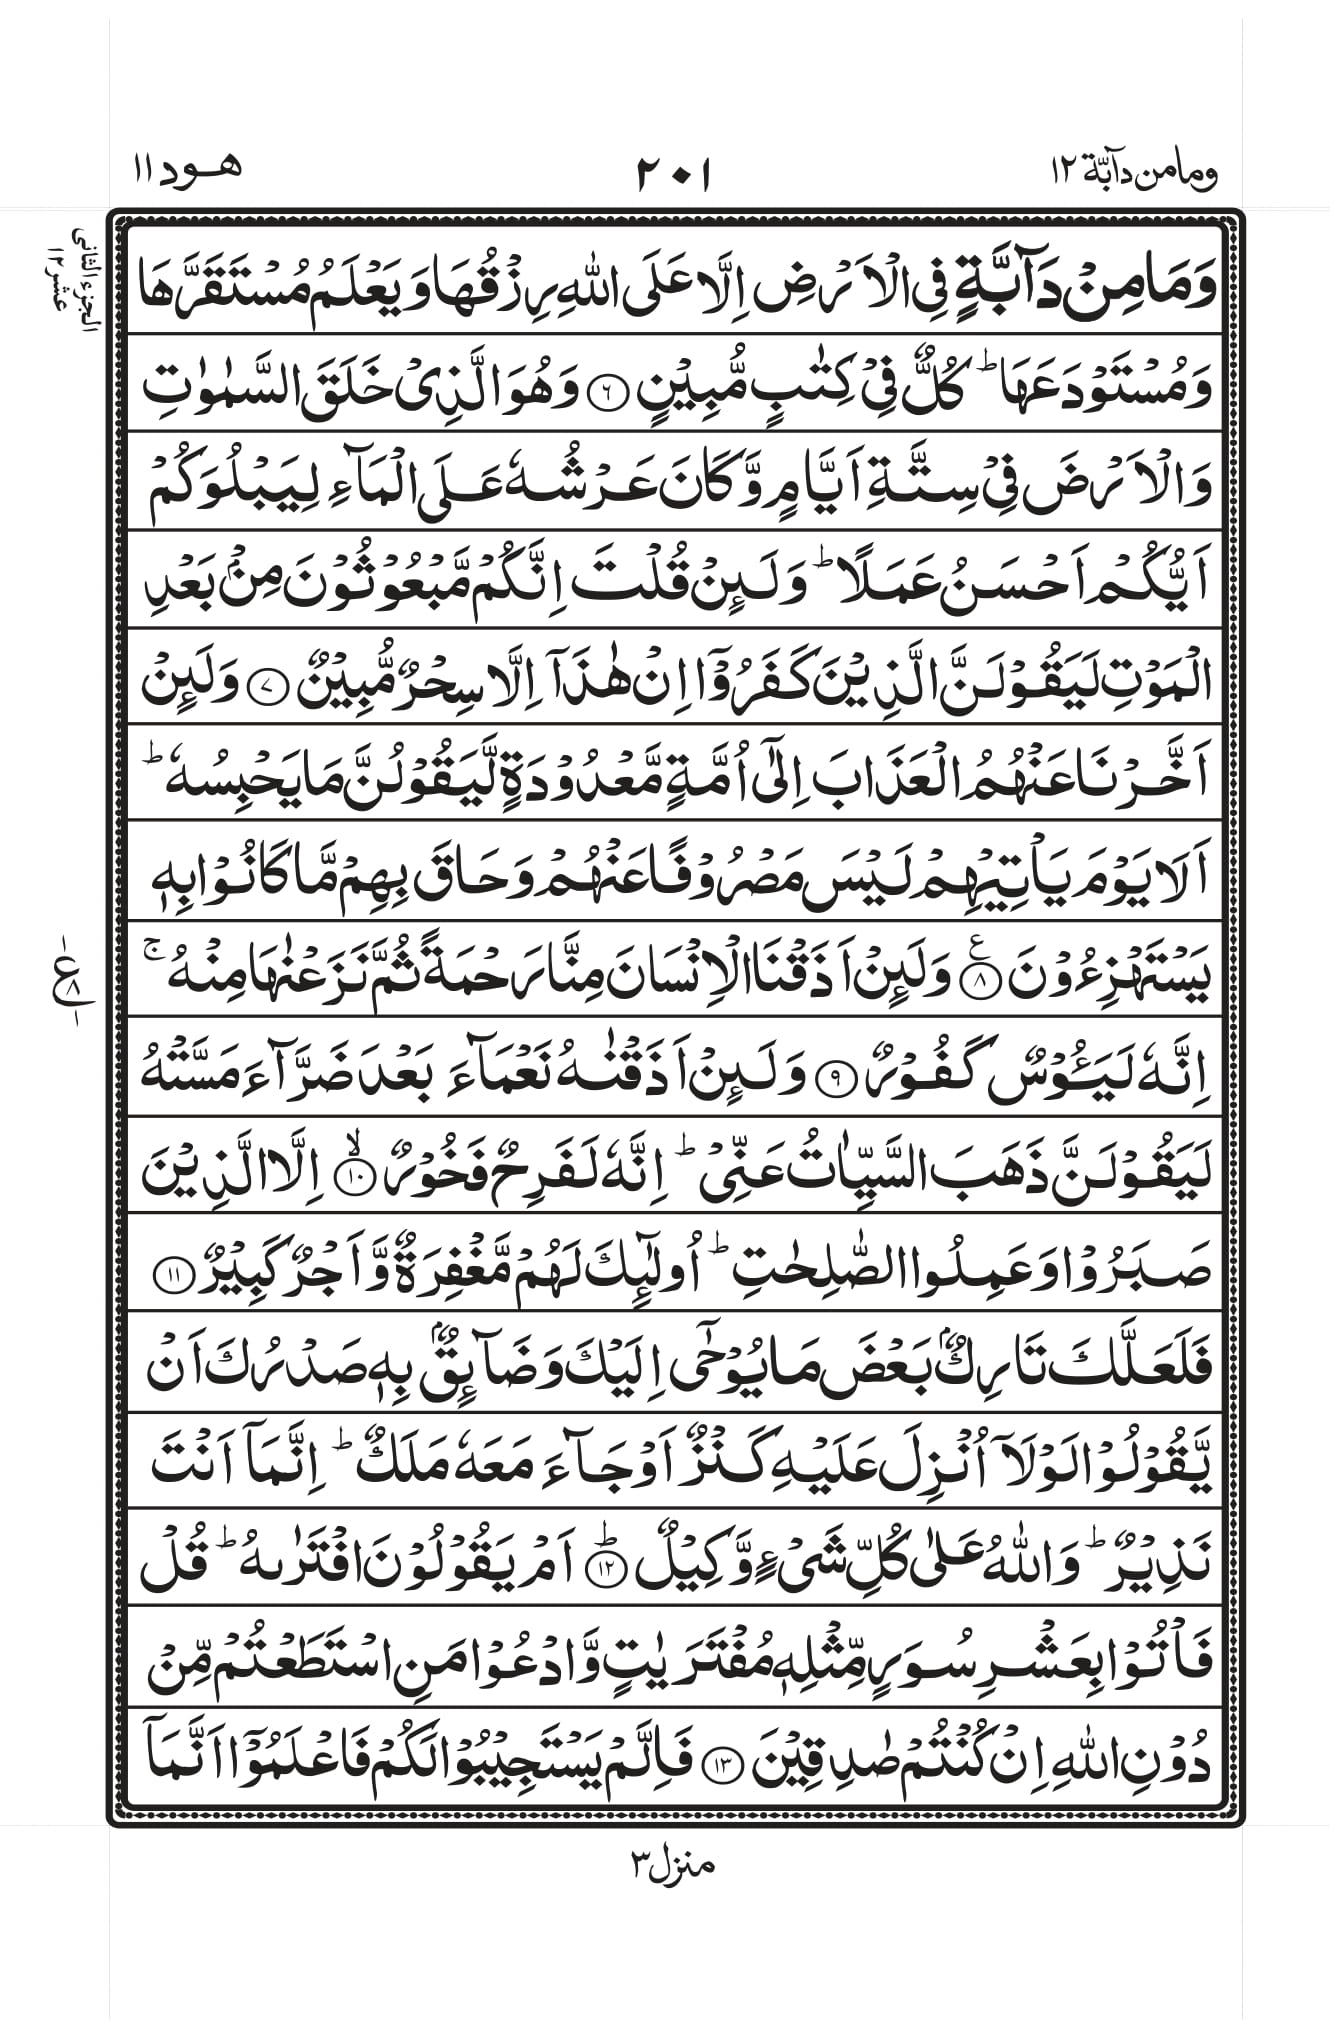 ومامن دآبّة ١٢
٢٠١
هود ١١
الجزء الثانی
عشر ١٢
وَمَا مِنۡ دَآبَّةٍ فِی الۡاَرۡضِ اِلَّا عَلَی اللّٰهِ رِزۡقُهَا وَ یَعۡلَمُ مُسۡتَقَرَّهَا
وَمُسۡتَوۡدَعَهَا ؕ كُلٌّ فِیۡ كِتٰبٍ مُّبِیۡنٍ ﴿٦﴾ وَهُوَ الَّذِیۡ خَلَقَ السَّمٰوٰتِ
وَالۡاَرۡضَ فِیۡ سِتَّةِ اَیَّامٍ وَّ كَانَ عَرۡشُهٗ عَلَی الۡمَآءِ لِیَبۡلُوَكُمۡ
اَیُّكُمۡ اَحۡسَنُ عَمَلًا ؕ وَلَئِنۡ قُلۡتَ اِنَّكُمۡ مَّبۡعُوۡثُوۡنَ مِنۡۢ بَعۡدِ
الۡمَوۡتِ لَیَقُوۡلَنَّ الَّذِیۡنَ كَفَرُوۡۤا اِنۡ هٰذَاۤ اِلَّا سِحۡرٌ مُّبِیۡنٌ ﴿٧﴾ وَلَئِنۡ
اَخَّرۡنَا عَنۡهُمُ الۡعَذَابَ اِلٰۤی اُمَّةٍ مَّعۡدُوۡدَةٍ لَّیَقُوۡلُنَّ مَا یَحۡبِسُهٗ ؕ
اَلَا یَوۡمَ یَاۡتِیۡهِمۡ لَیۡسَ مَصۡرُوۡفًا عَنۡهُمۡ وَحَاقَ بِهِمۡ مَّا كَانُوۡا بِهٖ
یَسۡتَهۡزِءُوۡنَ ﴿٨﴾ ع وَلَئِنۡ اَذَقۡنَا الۡاِنۡسَانَ مِنَّا رَحۡمَةً ثُمَّ نَزَعۡنٰهَا مِنۡهُ ۚ
ع
٨
اِنَّهٗ لَیَـُٔوۡسٌ كَفُوۡرٌ ﴿٩﴾ وَلَئِنۡ اَذَقۡنٰهُ نَعۡمَآءَ بَعۡدَ ضَرَّآءَ مَسَّتۡهُ
لَیَقُوۡلَنَّ ذَهَبَ السَّیِّاٰتُ عَنِّیۡ ؕ اِنَّهٗ لَفَرِحٌ فَخُوۡرٌ ﴿١٠﴾ ۙ اِلَّا الَّذِیۡنَ
صَبَرُوۡا وَعَمِلُوا الصّٰلِحٰتِ ؕ اُولٰٓئِكَ لَهُمۡ مَّغۡفِرَةٌ وَّاَجۡرٌ كَبِیۡرٌ ﴿١١﴾
فَلَعَلَّكَ تَارِكٌۢ بَعۡضَ مَا یُوۡحٰۤی اِلَیۡكَ وَضَآئِقٌۢ بِهٖ صَدۡرُكَ اَنۡ
یَّقُوۡلُوۡا لَوۡلَاۤ اُنۡزِلَ عَلَیۡهِ كَنۡزٌ اَوۡ جَآءَ مَعَهٗ مَلَكٌ ؕ اِنَّمَاۤ اَنۡتَ
نَذِیۡرٌ ؕ وَاللّٰهُ عَلٰی كُلِّ شَیۡءٍ وَّكِیۡلٌ ﴿١٢﴾ ؕ اَمۡ یَقُوۡلُوۡنَ افۡتَرٰىهُ ؕ قُلۡ
فَاۡتُوۡا بِعَشۡرِ سُوَرٍ مِّثۡلِهٖ مُفۡتَرَیٰتٍ وَّادۡعُوۡا مَنِ اسۡتَطَعۡتُمۡ مِّنۡ
دُوۡنِ اللّٰهِ اِنۡ كُنۡتُمۡ صٰدِقِیۡنَ ﴿١٣﴾ فَاِلَّمۡ یَسۡتَجِیۡبُوۡا لَكُمۡ فَاعۡلَمُوۡۤا اَنَّمَاۤ
منزل ٣